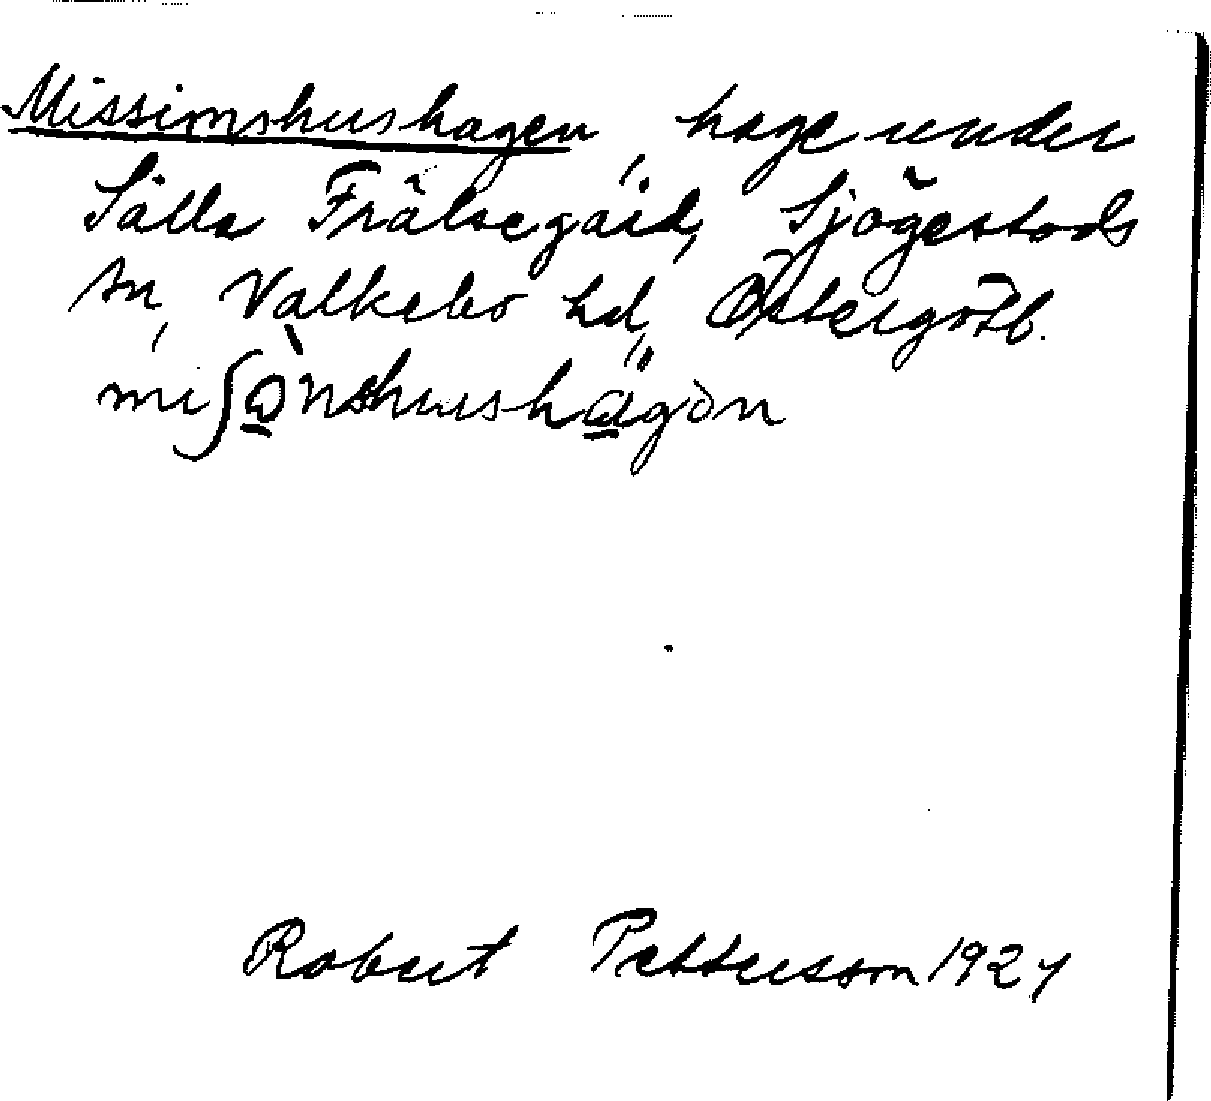 Missionshushagen, hage under
Sälla Frälsegård, Sjögestads
sn, Valkebo hd, Östergötl.
miʃò̲nshushä̲gən
Robert Pettersson 1927